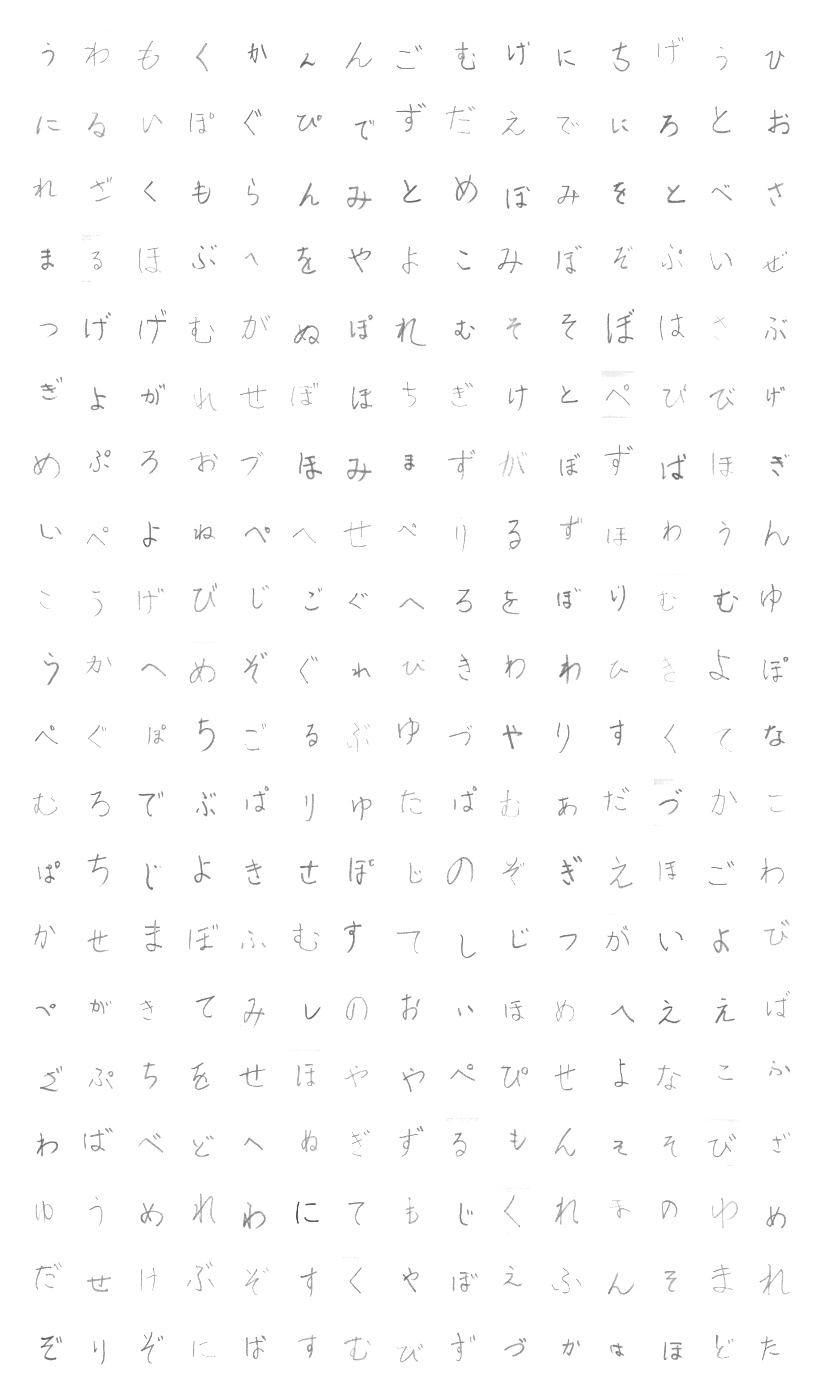 うわもくかえんごむげにちげうひ
にるいぽぐぴでずだえでにろとお
れざくもらんみとめぼみをとべさ
まるほぶへをやよこみぼぞぷいぜ
つげげむがぬぽれむそそぼはさぶ
ぎよがれせぼほちぎけとぺぴびげ
めぷろおづほみまずがぼずばほぎ
いぺよねぺへせぺりるずほわうん
こうげびじごぐへろをぼりむむゆ
うかへめぞぐれびきわわひきよぽ
ぺぐぽちごるぶゆづやりすくてな
むろでぶぱりゆたぱむあだづかこ
ぱちじよきせぽじのぞぎえほごわ
かせまぼふむすてしじつがいよび
ぺがきてみしのおいほめへええば
ざぷちをせほややぺぴせよなこか
わばべどへぬぎずるもんそそびざ
ゆうめれわにてもじくれまのゆめ
だせけぶぞすくやぼえふんそまれ
ぞりぞにばすむびずづかはほどた